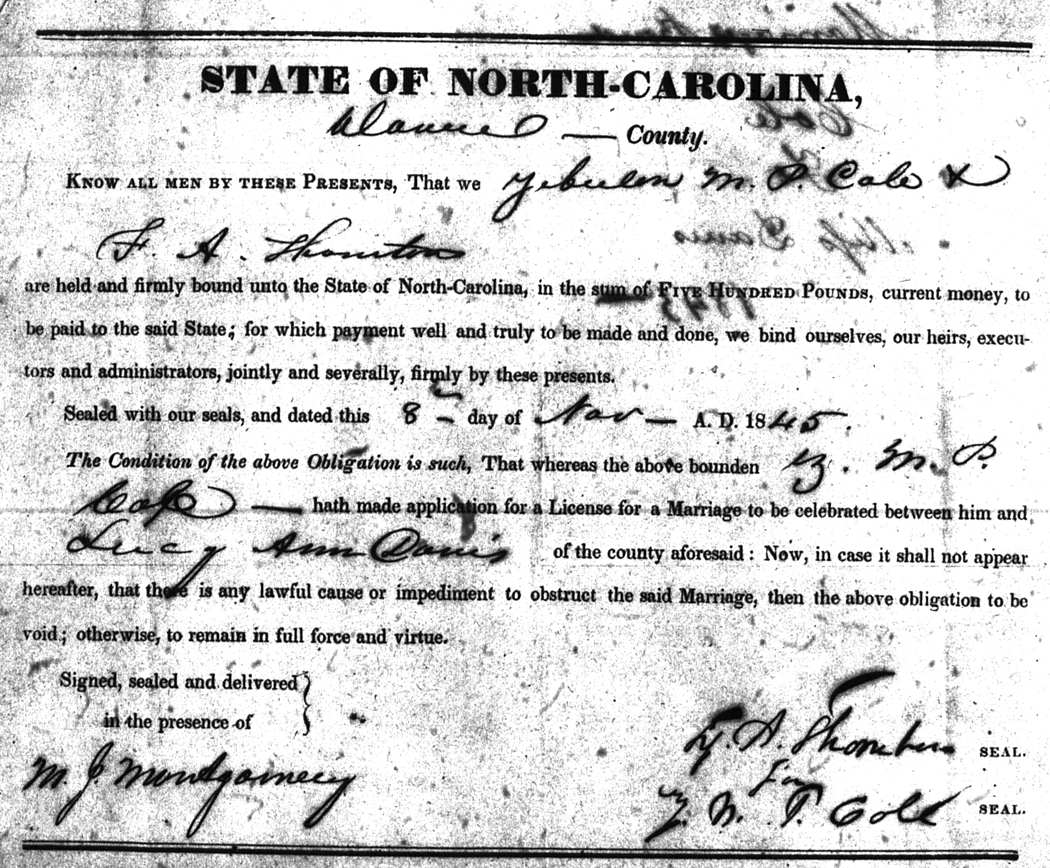 STATE OF NORTH-CAROLINA,
Warren — County.
KNOW ALL MEN BY THESE PRESENTS, That we Zebulon M. P. Cole &
F. A. Thornton
are held and firmly bound unto the State of North-Carolina, in the sum of FIVE HUNDRED POUNDS, current money, to
be paid to the said State; for which payment well and truly to be made and done, we bind ourselves, our heirs, execu-
tors and administrators, jointly and severally, firmly by these presents.
Sealed with our seals, and dated this 8 day of Nov — A. D. 1845.
The Condition of the above Obligation is such, That whereas the above bounden Z. M. P.
Cole — hath made application for a License for a Marriage to be celebrated between him and
Lucy Ann Davis of the county aforesaid: Now, in case it shall not appear
hereafter, that there is any lawful cause or impediment to obstruct the said Marriage, then the above obligation to be
void; otherwise, to remain in full force and virtue.
Signed, sealed and delivered
in the presence of
M. J. Montgomery
F. A. Thornton SEAL.
for
Z. M. P. Cole SEAL.